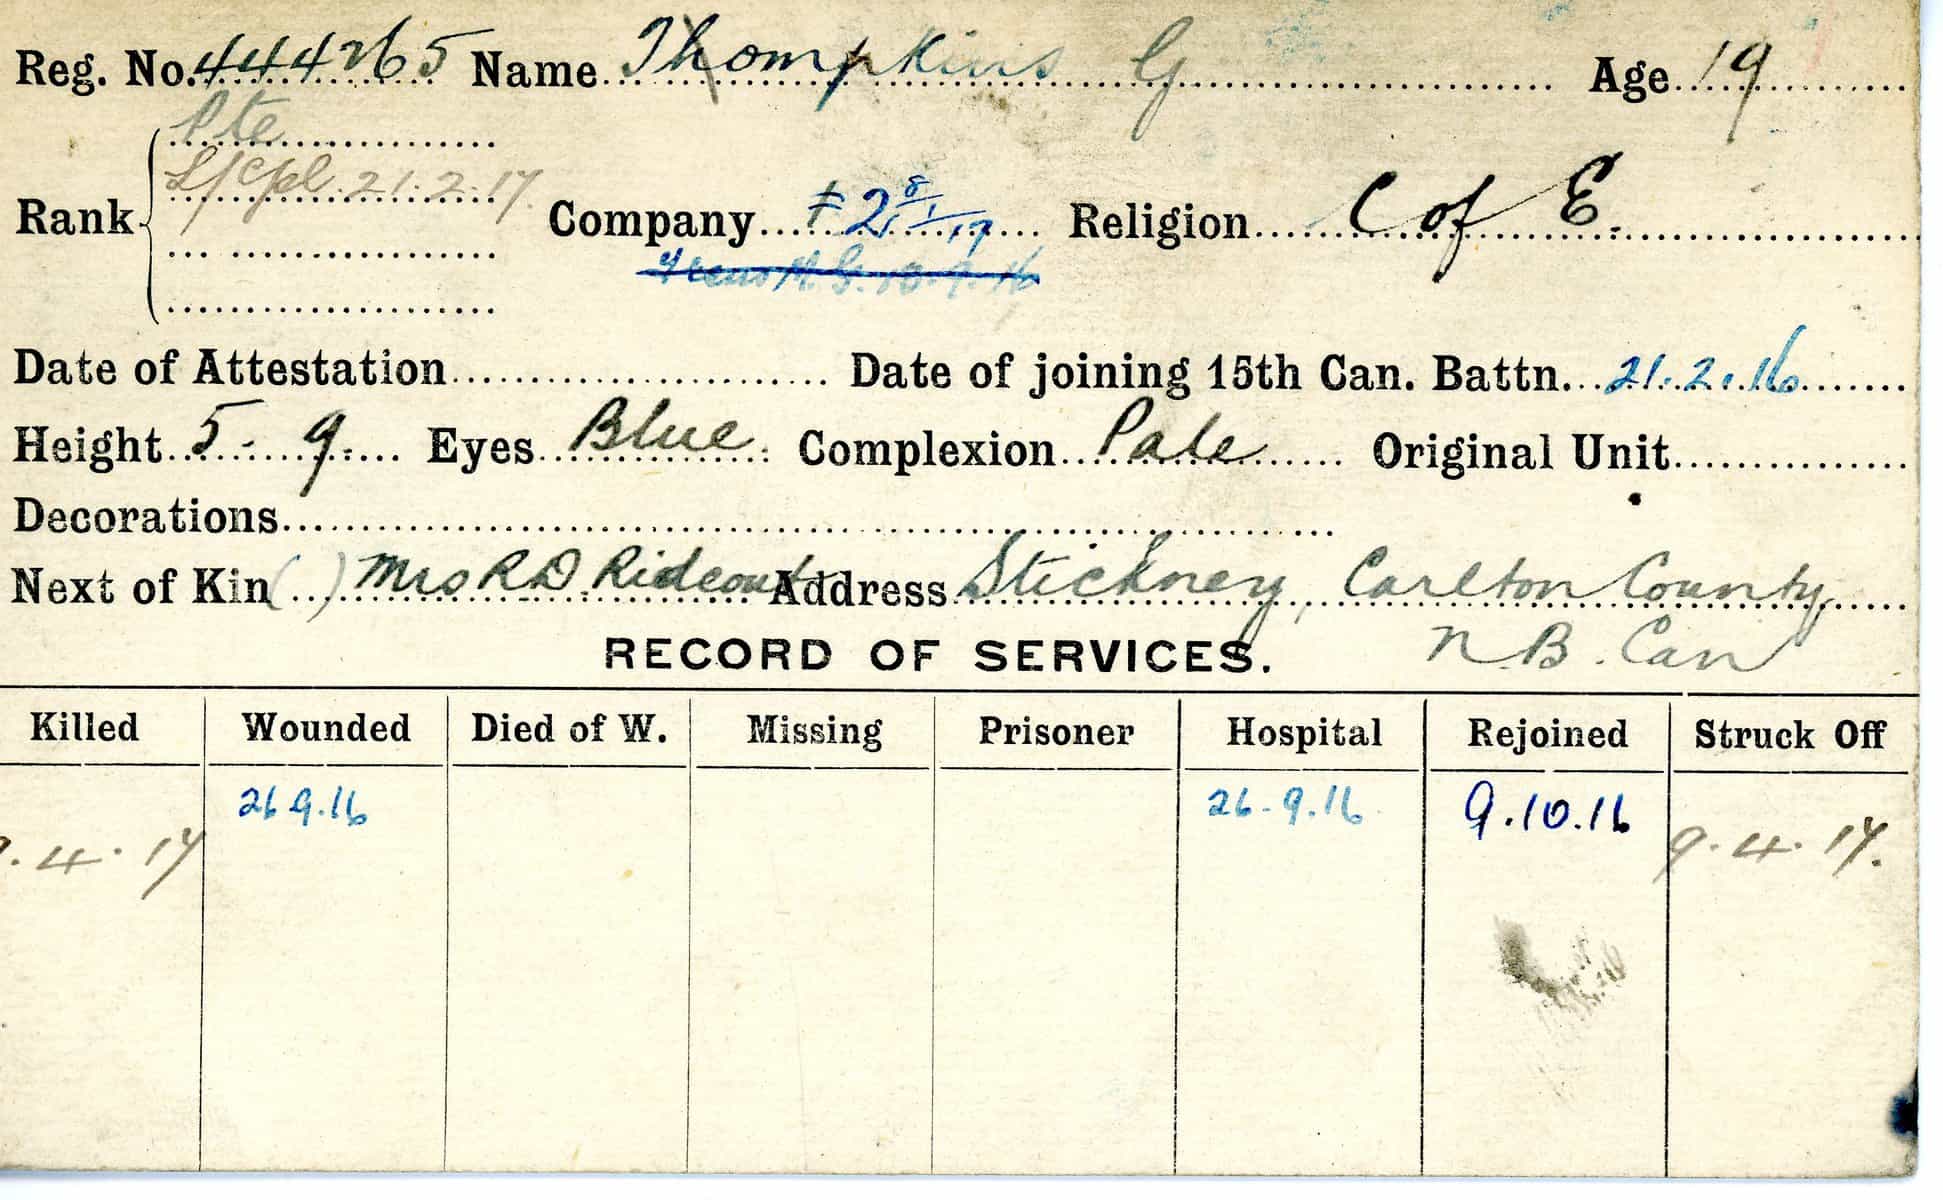 Reg. No. 444265 Name Thompkins G Age 19
Pte
L/Cpl 21.2.17.
Rank Company 2 8/1/17 Religion C of E.
M.G. 10.9.16
Date of Attestation Date of joining 15th Can. Battn. 21.2.16
Height 5-9. Eyes Blue Complexion Pale Original Unit
Decorations
Next of Kin ( ) Mrs R D Rideout Address Stickney, Carlton County
N.B. Can
RECORD OF SERVICES.
Killed Wounded Died of W. Missing Prisoner Hospital Rejoined Struck Off
26 9.16 26-9.16 9.10.16
.4.17 9.4.17.